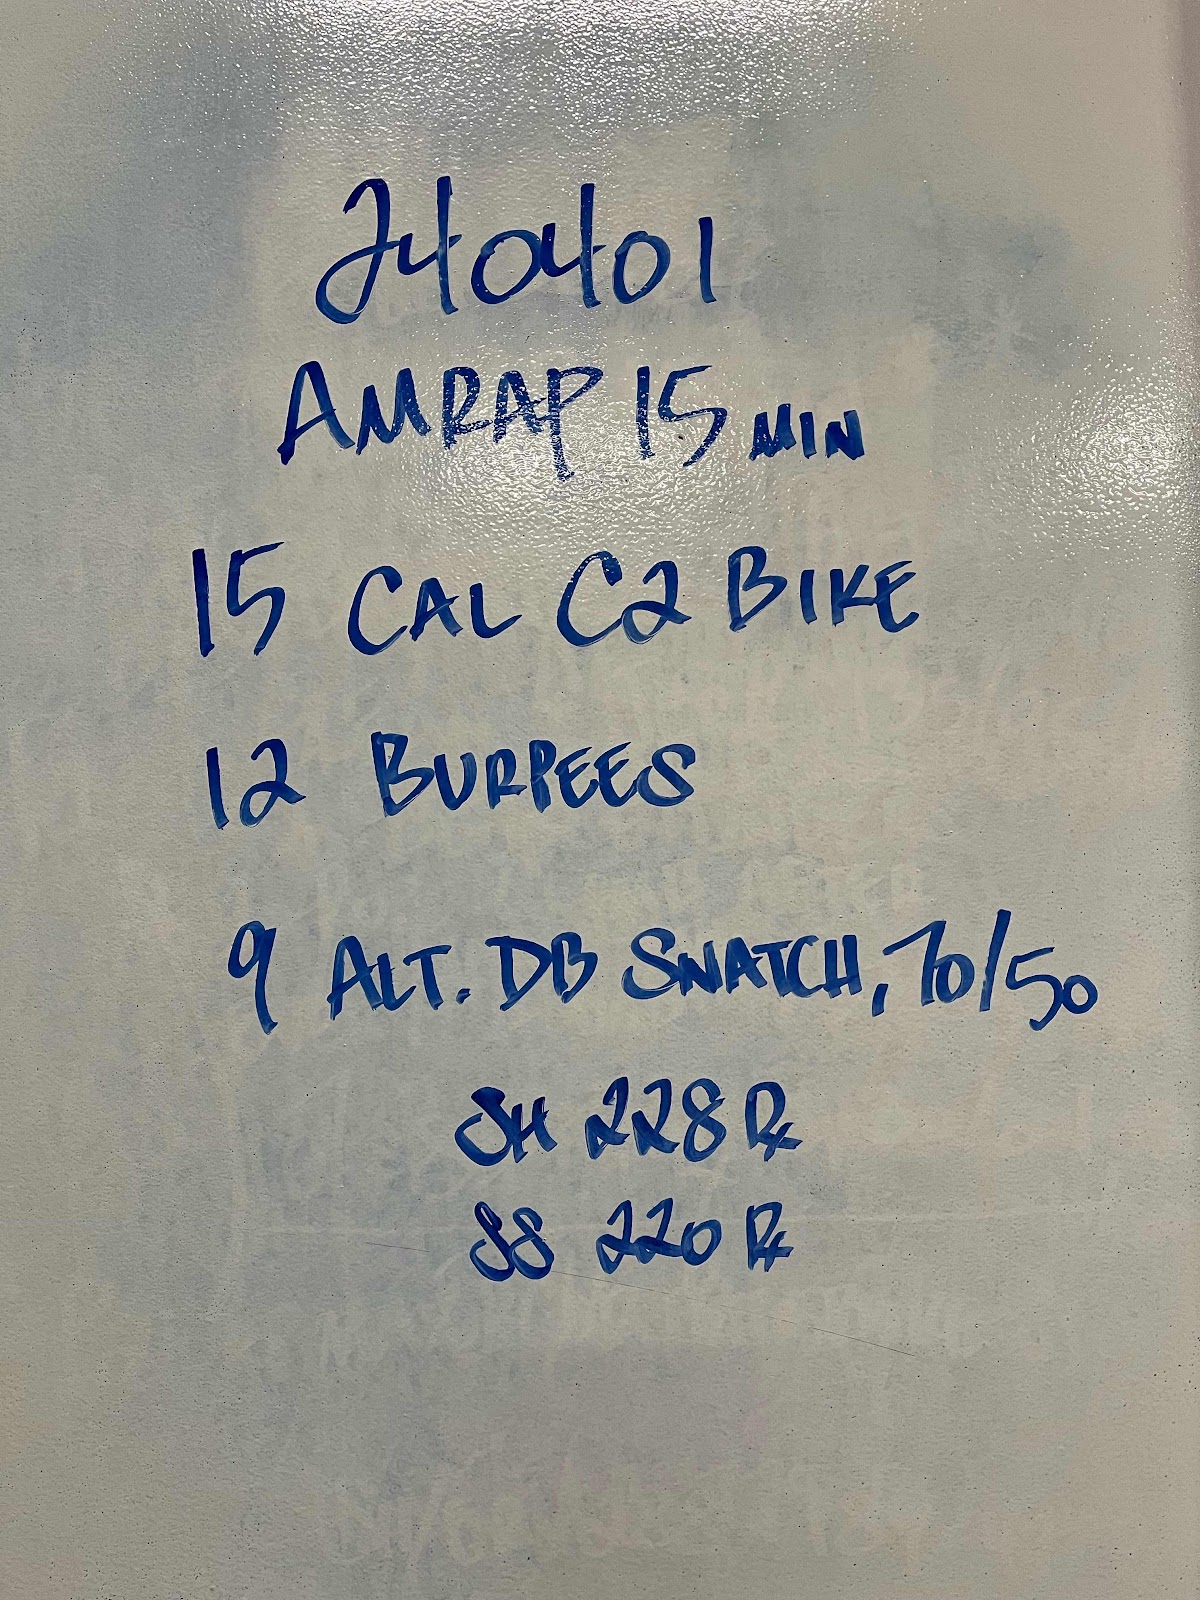 240401
AMRAP 15 MIN
15 CAL C2 BIKE
12 BURPEES
9 ALT. DB SNATCH, 70/50
SH 228 Rx
SS 220 Rx